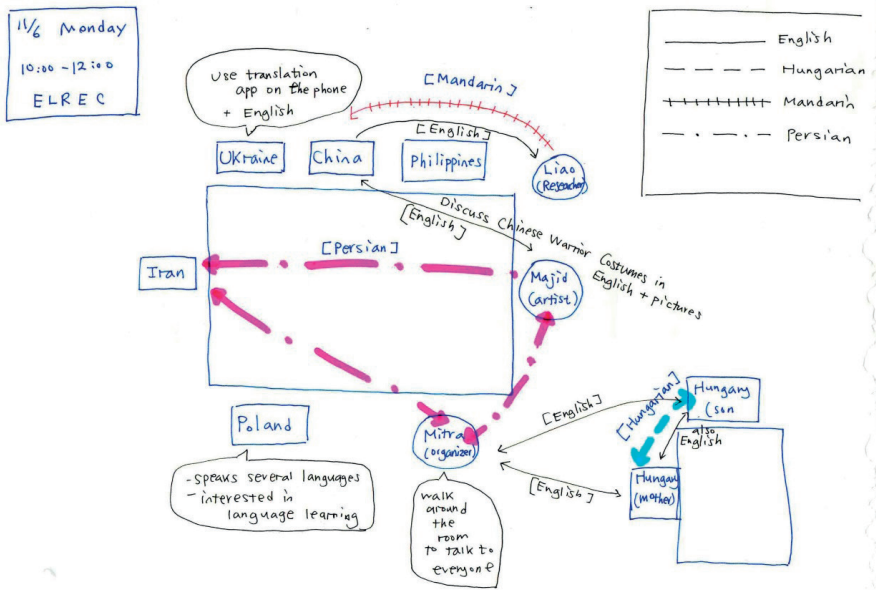 11/6 Monday
10:00-12:00
ELREC
English
Hungarian
Mandarin
Persian
use translation
app on the phone
+ English
[Mandarin]
[English]
Ukraine
China
Philippines
Liao
(Researcher)
Discuss Chinese Warrior Costumes in
English + pictures
[English]
[Persian]
Iran
Majid
(artist)
Poland
- speaks several languages
- interested in
language learning
Mitra
(organizer)
walk
around
the
room
to talk to
everyone
[English]
[English]
[Hungarian]
also
English
Hungary
(son
Hungary
(mother)